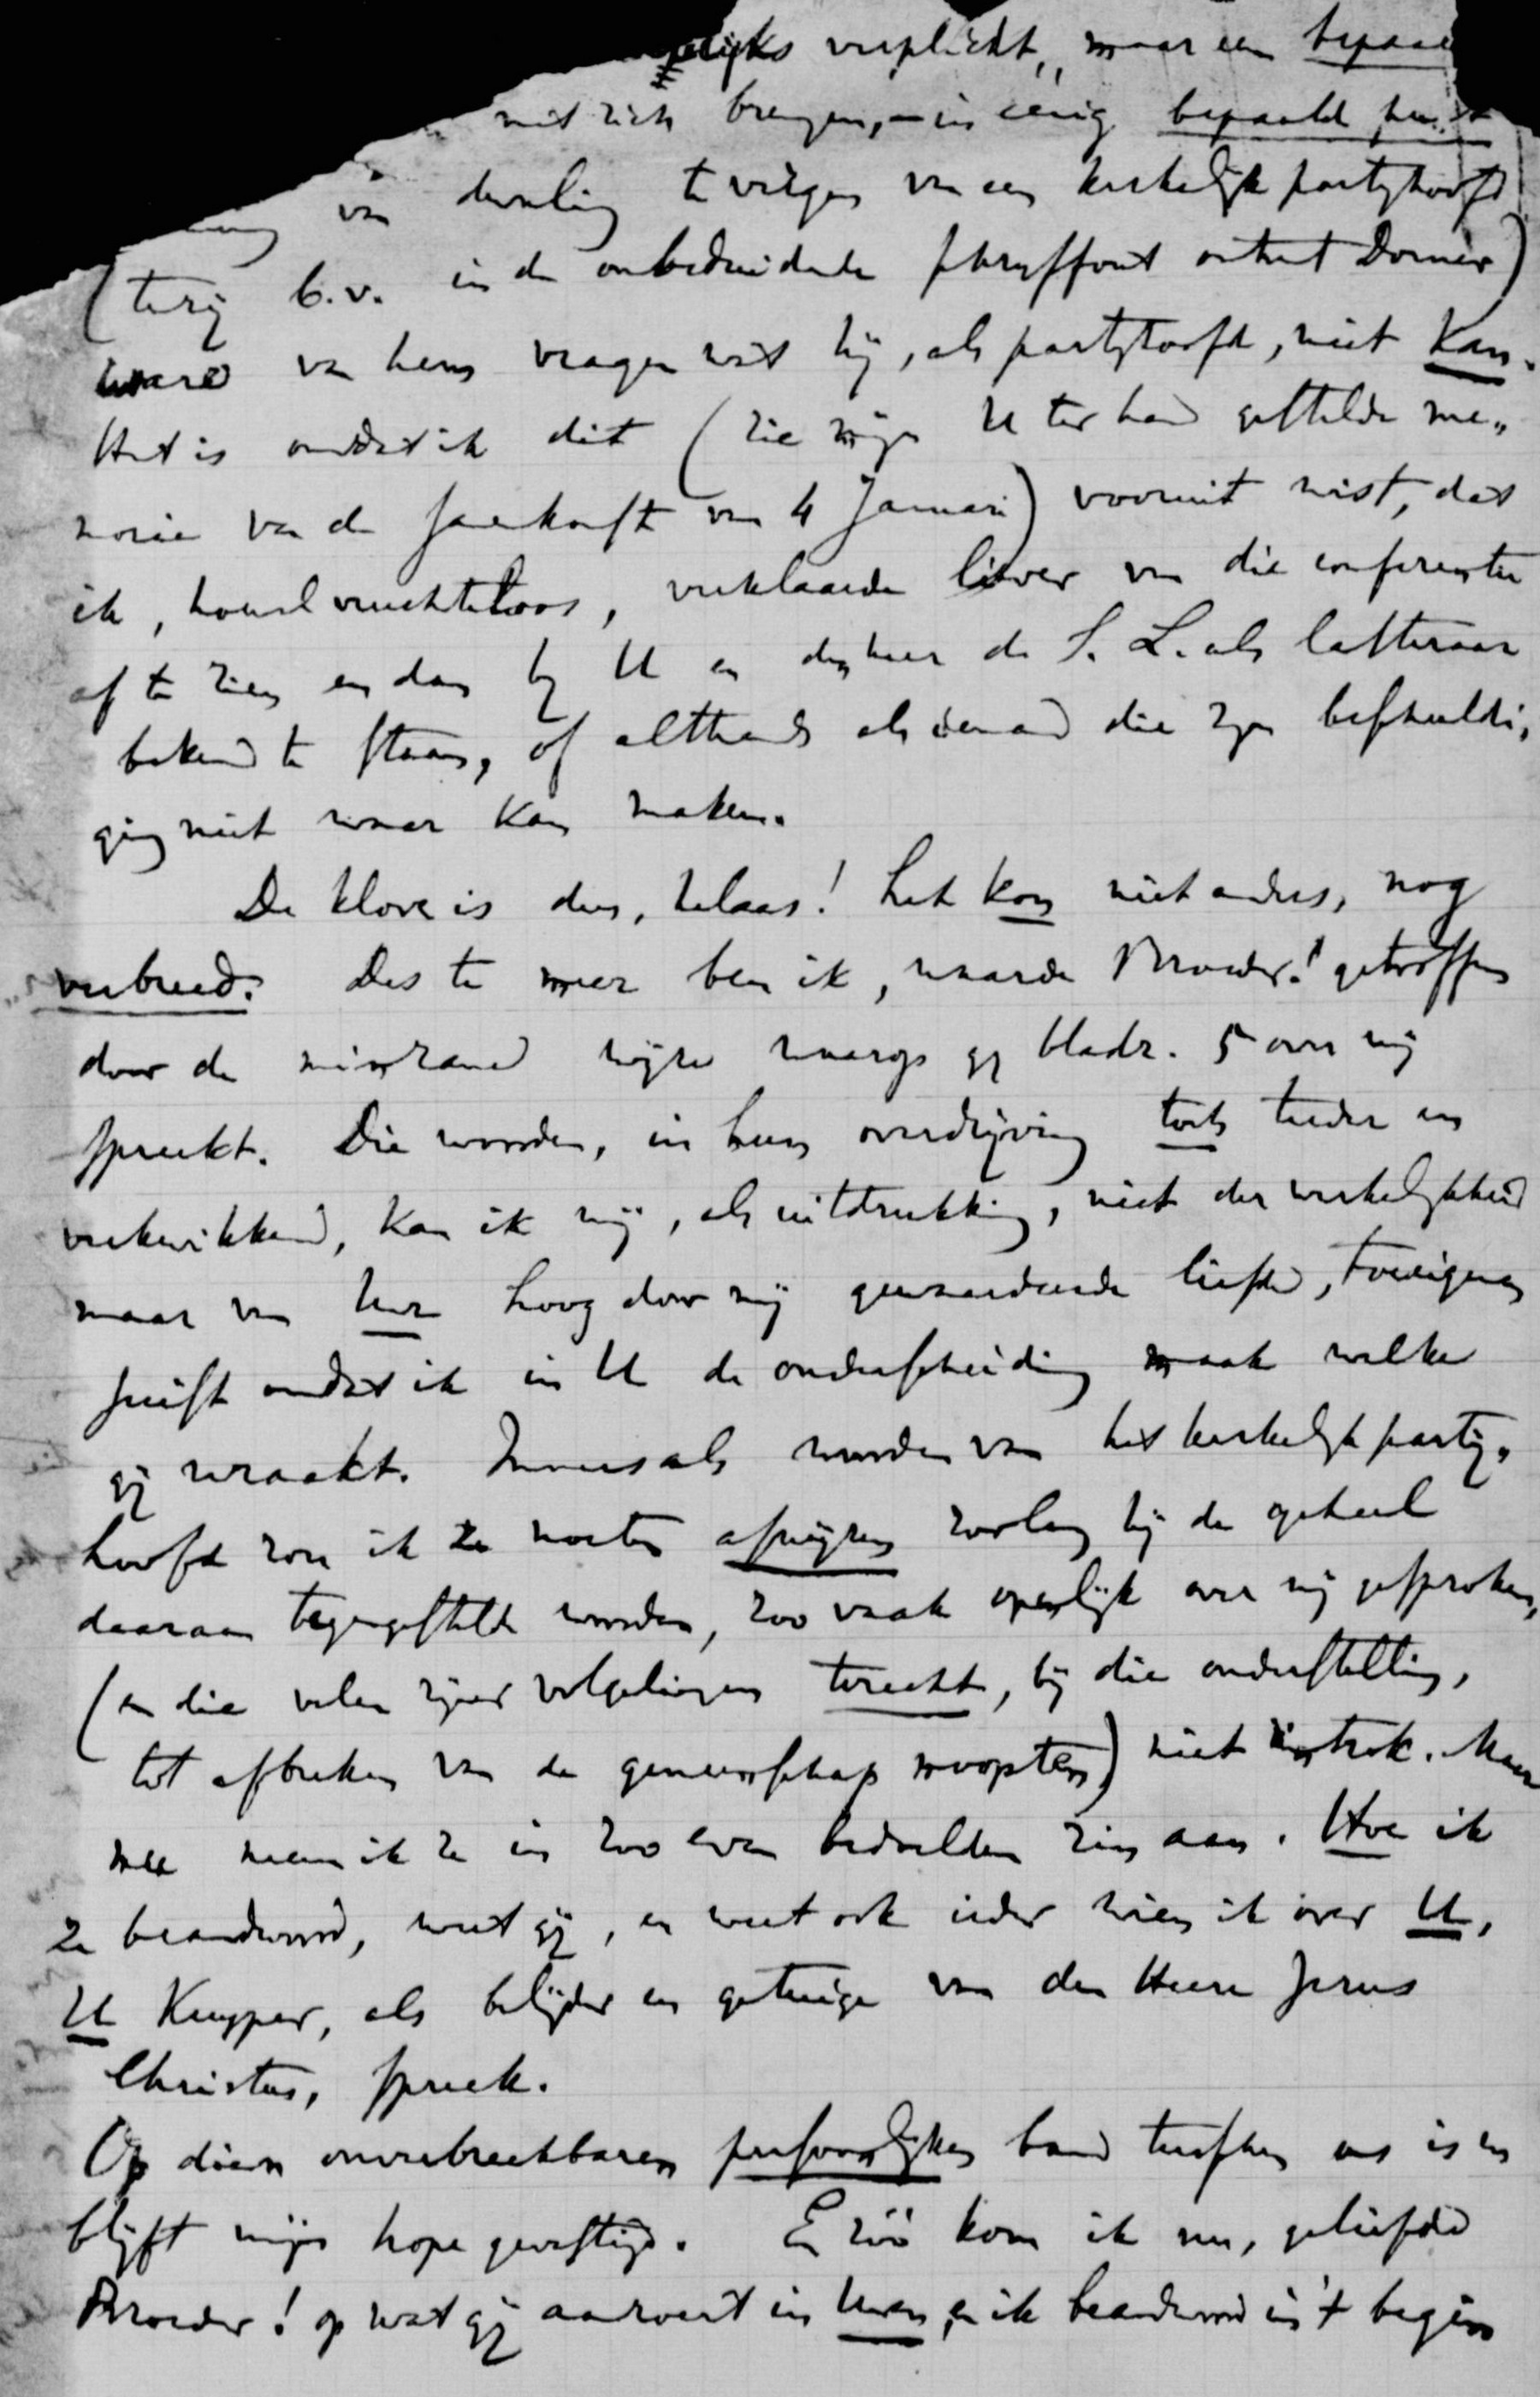 elijks verplicht, maar een bepaal
met zich brengen, – in eenig bepaald punt
van dwaling te vragen van een kerkelijk partyhoofd
(tenzij b.v. in de onbeduidende omtrent Dorner)
ware van hem vragen wat hij, als partyhoofd, niet kan.
Het is omdat ik dit (zie mijn U ter hand gestelde me„
morie van de van 4 Januari) vooruit wist, dat
ik, houd vruchteloos, verklaarde liever van die conferentie
af te zien en dan bij U en den heer de S. L. als lasteraar
bekend te staan, of althans als iemand die zijn beschuldi„
ging niet waar kan maken.
De klove is dus, helaas! het kon niet anders, nog
verbreed. Des te meer ben ik, waarde Broeder! getroffen
door de wijze waarop gij bladz. 5 over mij
spreekt. Die woorden, in hun overdrijving toch teeder en
verkwikkend, kan ik mij, als uitdrukking, niet der werkelijkheid
maar van Uw hoog door mij gewaardeerde liefde, toeeigenen
juist omdat ik in U de onderscheiding maak welke
gij wraakt. Immers als woorden van het kerkelijk partij„
hoofd zou ik ze moeten afwijzen zoolang hij de geheel
daaraan tegengestelde woorden, zoo vaak openlijk over mij gesproken,
(en die velen zijner volgelingen terecht, bij die onderstelling,
tot afbreken van de gemeenschap noopten) niet introk. Maar
nu neem ik ze in zoo even bedoelden zin aan. Hoe ik
ze beantwoord, weet gij, en weet ook ieder wien ik over U,
U Kuyper, als belijder en getuige van den Heere Jezus
Christus, spreek.
Op dien onverbreekbaren persoonlijken band tusschen ons is en
blijft mijn hope gevestigd. En zóó kom ik nu, geliefde
Broeder! op wat gij aanvoert in Uwen, en ik beantwoord in 't begin